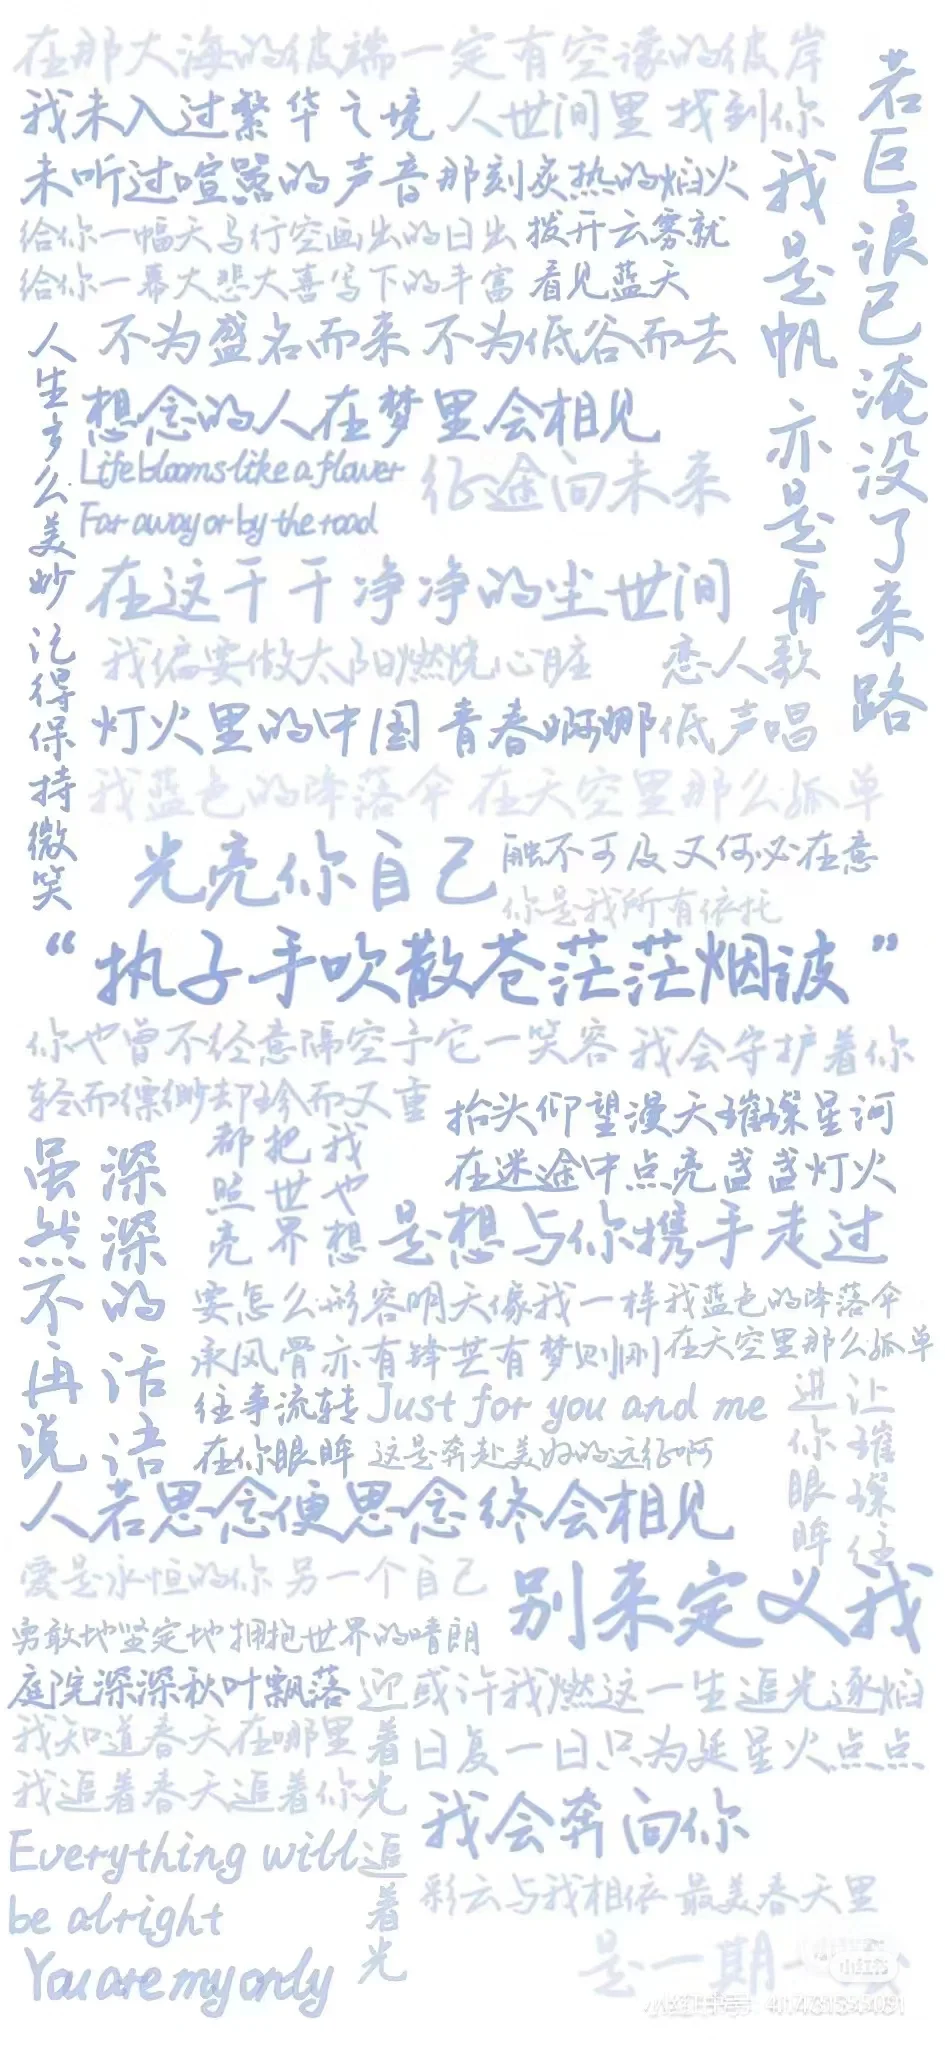 在那大海的彼端一定有空濛的彼岸
我未入过繁华之境
人世间里找到你
未听过喧嚣的声音
那刻炙热的焰火
给你一幅天马行空画出的日出
拨开云雾就
看见蓝天
给你一幕大悲大喜写下的丰富
若巨浪已淹没了来路
我是帆亦是舟
不为盛名而来 不为低谷而去
人生多么美妙 记得保持微笑
想念的人在梦里会相见
Life blooms like a flower
Far away or by the road
征途向未来
在这干干净净的尘世间
我偏要做太阳燃烧心脏
恋人歌
灯火里的中国 青春婀娜
低声唱
我蓝色的降落伞 在天空里那么孤单
光亮你自己
触不可及又何必在意
你是我所有依托
“执子手吹散苍茫茫烟波”
你也曾不经意隔空予它一笑容
我会守护着你
轻而缥缈却珍而又重
抬头仰望漫天璀璨星河
在迷途中点亮盏盏灯火
虽然不再说
深深的话语
我也想
把世界
都照亮
是想与你携手走过
要怎么形容明天像我一样
承风骨亦有锋芒有梦则刚
我蓝色的降落伞
在天空里那么孤单
往事流转
在你眼眸
Just for you and me
这是奔赴美好的远征啊
让璀璨往
进你眼眸
人若思念便思念终会相见
爱是永恒的你另一个自己
别来定义我
勇敢地坚定地拥抱世界的晴朗
庭院深深秋叶飘落
迎着光追着光
或许我燃这一生追光逐焰
日复一日只为延星火点点
我知道春天在哪里
我追着春天追着你
我会奔向你
Everything will
be alright
You are my only
彩云与我相依 最美春天里
是一期一
小红书
小红书号：